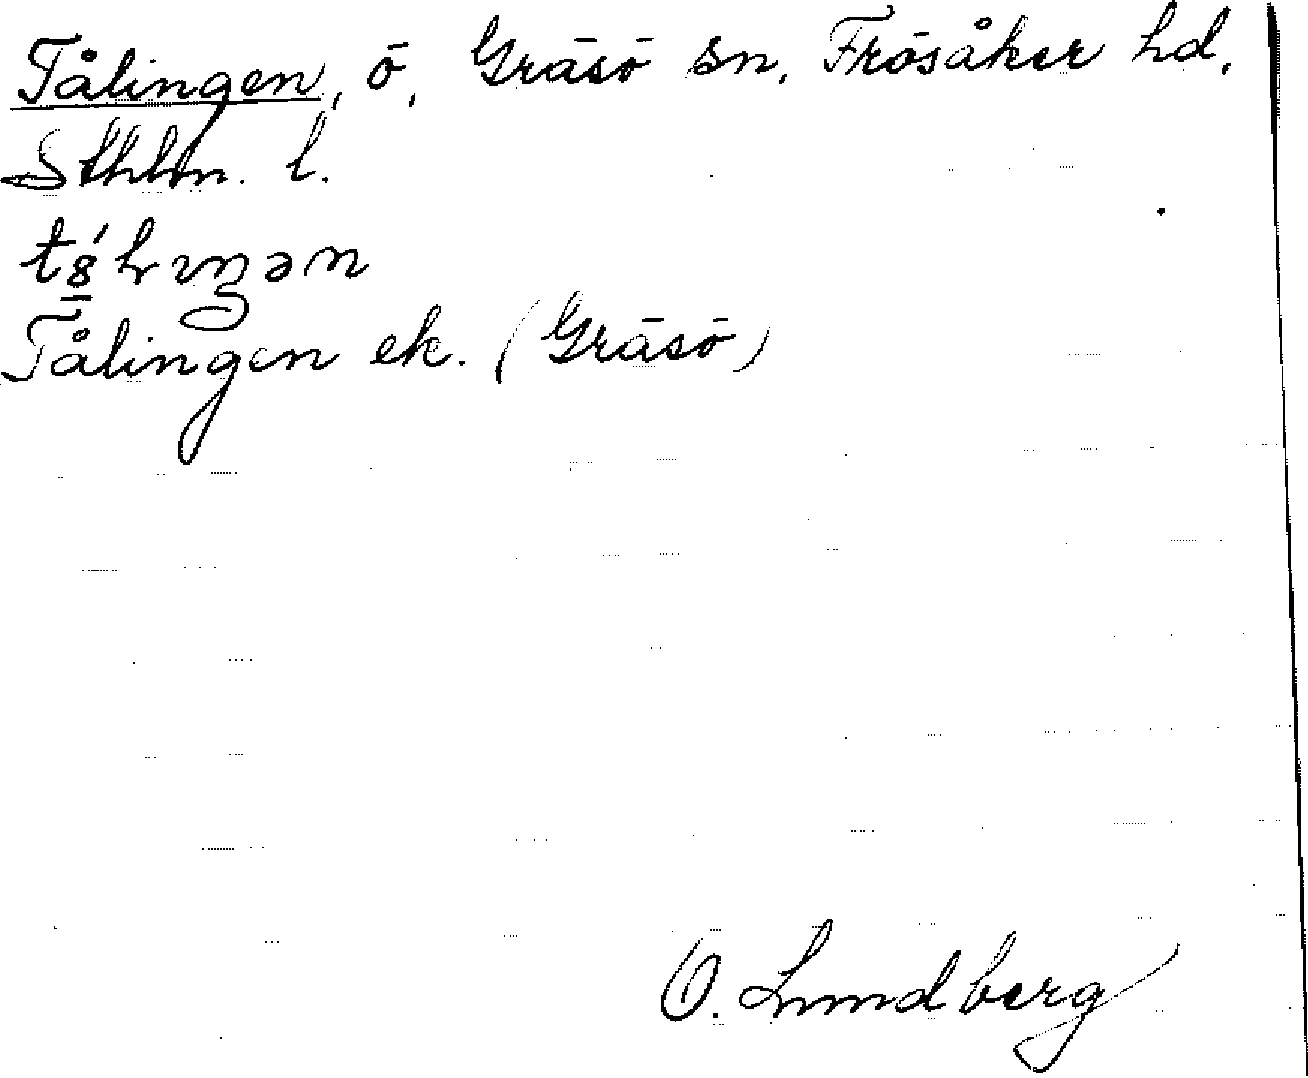 Tålingen, ö, Gräsö sn, Frösåker hd,
Sthlm. l.
Tålingen ek. (Gräsö)
O. Lundberg